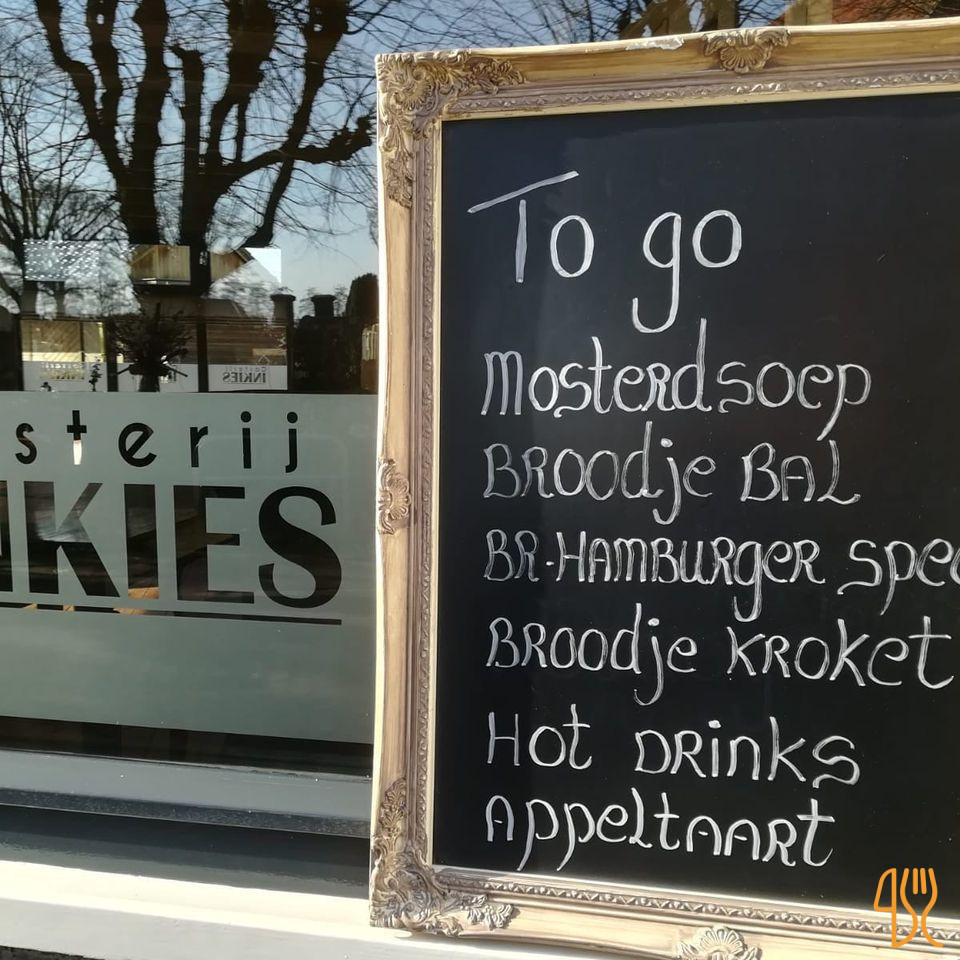 sterij
NKIES
To go
Mosterdsoep
Broodje Bal
Br. Hamburger spec
Broodje kroket
Hot Drinks
Appeltaart